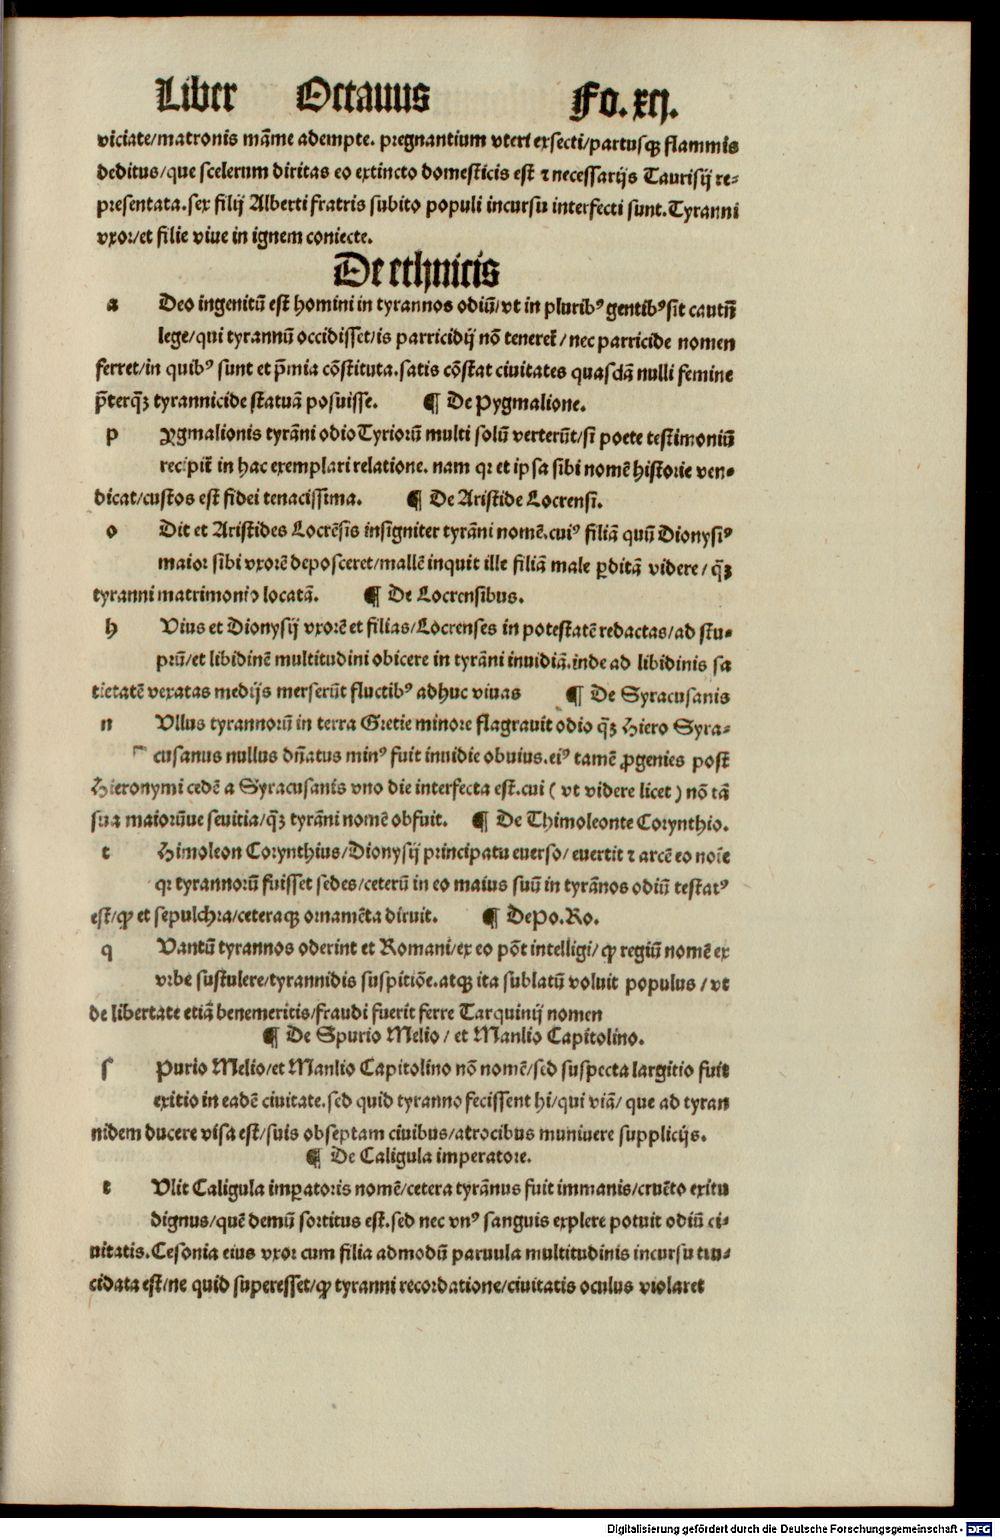 Liber Octauus Fo. xcj.
viciate/matronis mãme adempte. pregnantium vteri exsecti/partusqꝫ flammis
deditus/que scelerum diritas eo extincto domesticis est ⁊ necessarijs Taurisij re⸗
presentata.sex filij Alberti fratris subito populi incursu interfecti sunt.Tyranni
vxor/et filie viue in ignem coniecte.
De ethnicis
a Deo ingenitũ est homini in tyrannos odiũ/vt in pluribꝰ gentibꝰ sit cautũ
lege/qui tyrannũ occidisset/is parricidij nõ teneret̃/nec parricide nomen
ferret/in quibꝰ sunt et p̃mia cõstituta.satis cõstat ciuitates quasdã nulli femine
p̃terq̃ꝫ tyrannicide statuã posuisse. ¶ De Pygmalione.
p Ygmalionis tyrãni odio Tyriorũ multi solũ verterũt/si poete testimoniũ
recipit̃ in hac exemplari relatione. nam qꝛ et ipsa sibi nomẽ historie ven⸗
dicat/custos est fidei tenacissima. ¶ De Aristide Locrensi.
o Dit et Aristides Locrẽsis insigniter tyrãni nomẽ.cuiꝰ filiã quũ Dionysiꝰ
maior sibi vxorẽ deposceret/mallẽ inquit ille filiã male ꝑditã videre/q̃ꝫ
tyranni matrimonio locatã. ¶ De Locrensibus.
h Vius et Dionysij vxorẽ et filias/Locrenses in potestatẽ redactas/ad stu⸗
prũ/et libidinẽ multitudini obicere in tyrãni inuidiã.inde ad libidinis sa
tietatẽ vexatas medijs merserũt fluctibꝰ adhuc viuas ¶ De Syracusanis
n Vllus tyrannorũ in terra Gretie minore flagrauit odio q̃ꝫ Hiero Syra⸗
cusanus nullus dñatus minꝰ fuit inuidie obuius.eiꝰ tamẽ ꝓgenies post
Hieronymi cedẽ a Syracusanis vno die interfecta est.cui (vt videre licet) nõ tã
sua maiorũue seuitia/q̃ꝫ tyrãni nomẽ obfuit. ¶ De Thimoleonte Corynthio.
t Himoleon Corynthius/Dionysij principatu euerso/euertit ⁊ arcẽ eo noĩe
qꝛ tyrannorũ fuisset sedes/ceterũ in eo maius suũ in tyrãnos odiũ testatꝰ
est/ꝙ et sepulchra/ceteraqꝫ ornamẽta diruit. ¶ De Po.Ro.
q Vantũ tyrannos oderint et Romani/ex eo põt intelligi/ꝙ regiũ nomẽ ex
vrbe sustulere/tyrannidis suspitiõe.atqꝫ ita sublatũ voluit populus/vt
de libertate etiã benemeritis/fraudi fuerit ferre Tarquinij nomen
¶ De Spurio Melio/et Manlio Capitolino.
s Purio Melio/et Manlio Capitolino nõ nomẽ/sed suspecta largitio fuit
exitio in eadẽ ciuitate.sed quid tyranno fecissent hi/qui viã/que ad tyran
nidem ducere visa est/suis obseptam ciuibus/atrocibus muniuere supplicijs.
¶ De Caligula imperatore.
t Vlit Caligula imꝑatoris nomẽ/cetera tyrãnus fuit immanis/cruẽto exitu
dignus/quẽ demũ sortitus est.sed nec vnꝰ sanguis explere potuit odiũ ci⸗
uitatis.Cesonia eius vxor cum filia admodũ paruula multitudinis incursu tru⸗
cidata est/ne quid superesset/ꝙ tyranni recordatione/ciuitatis oculus violaret
Digitalisierung gefördert durch die Deutsche Forschungsgemeinschaft - DFG